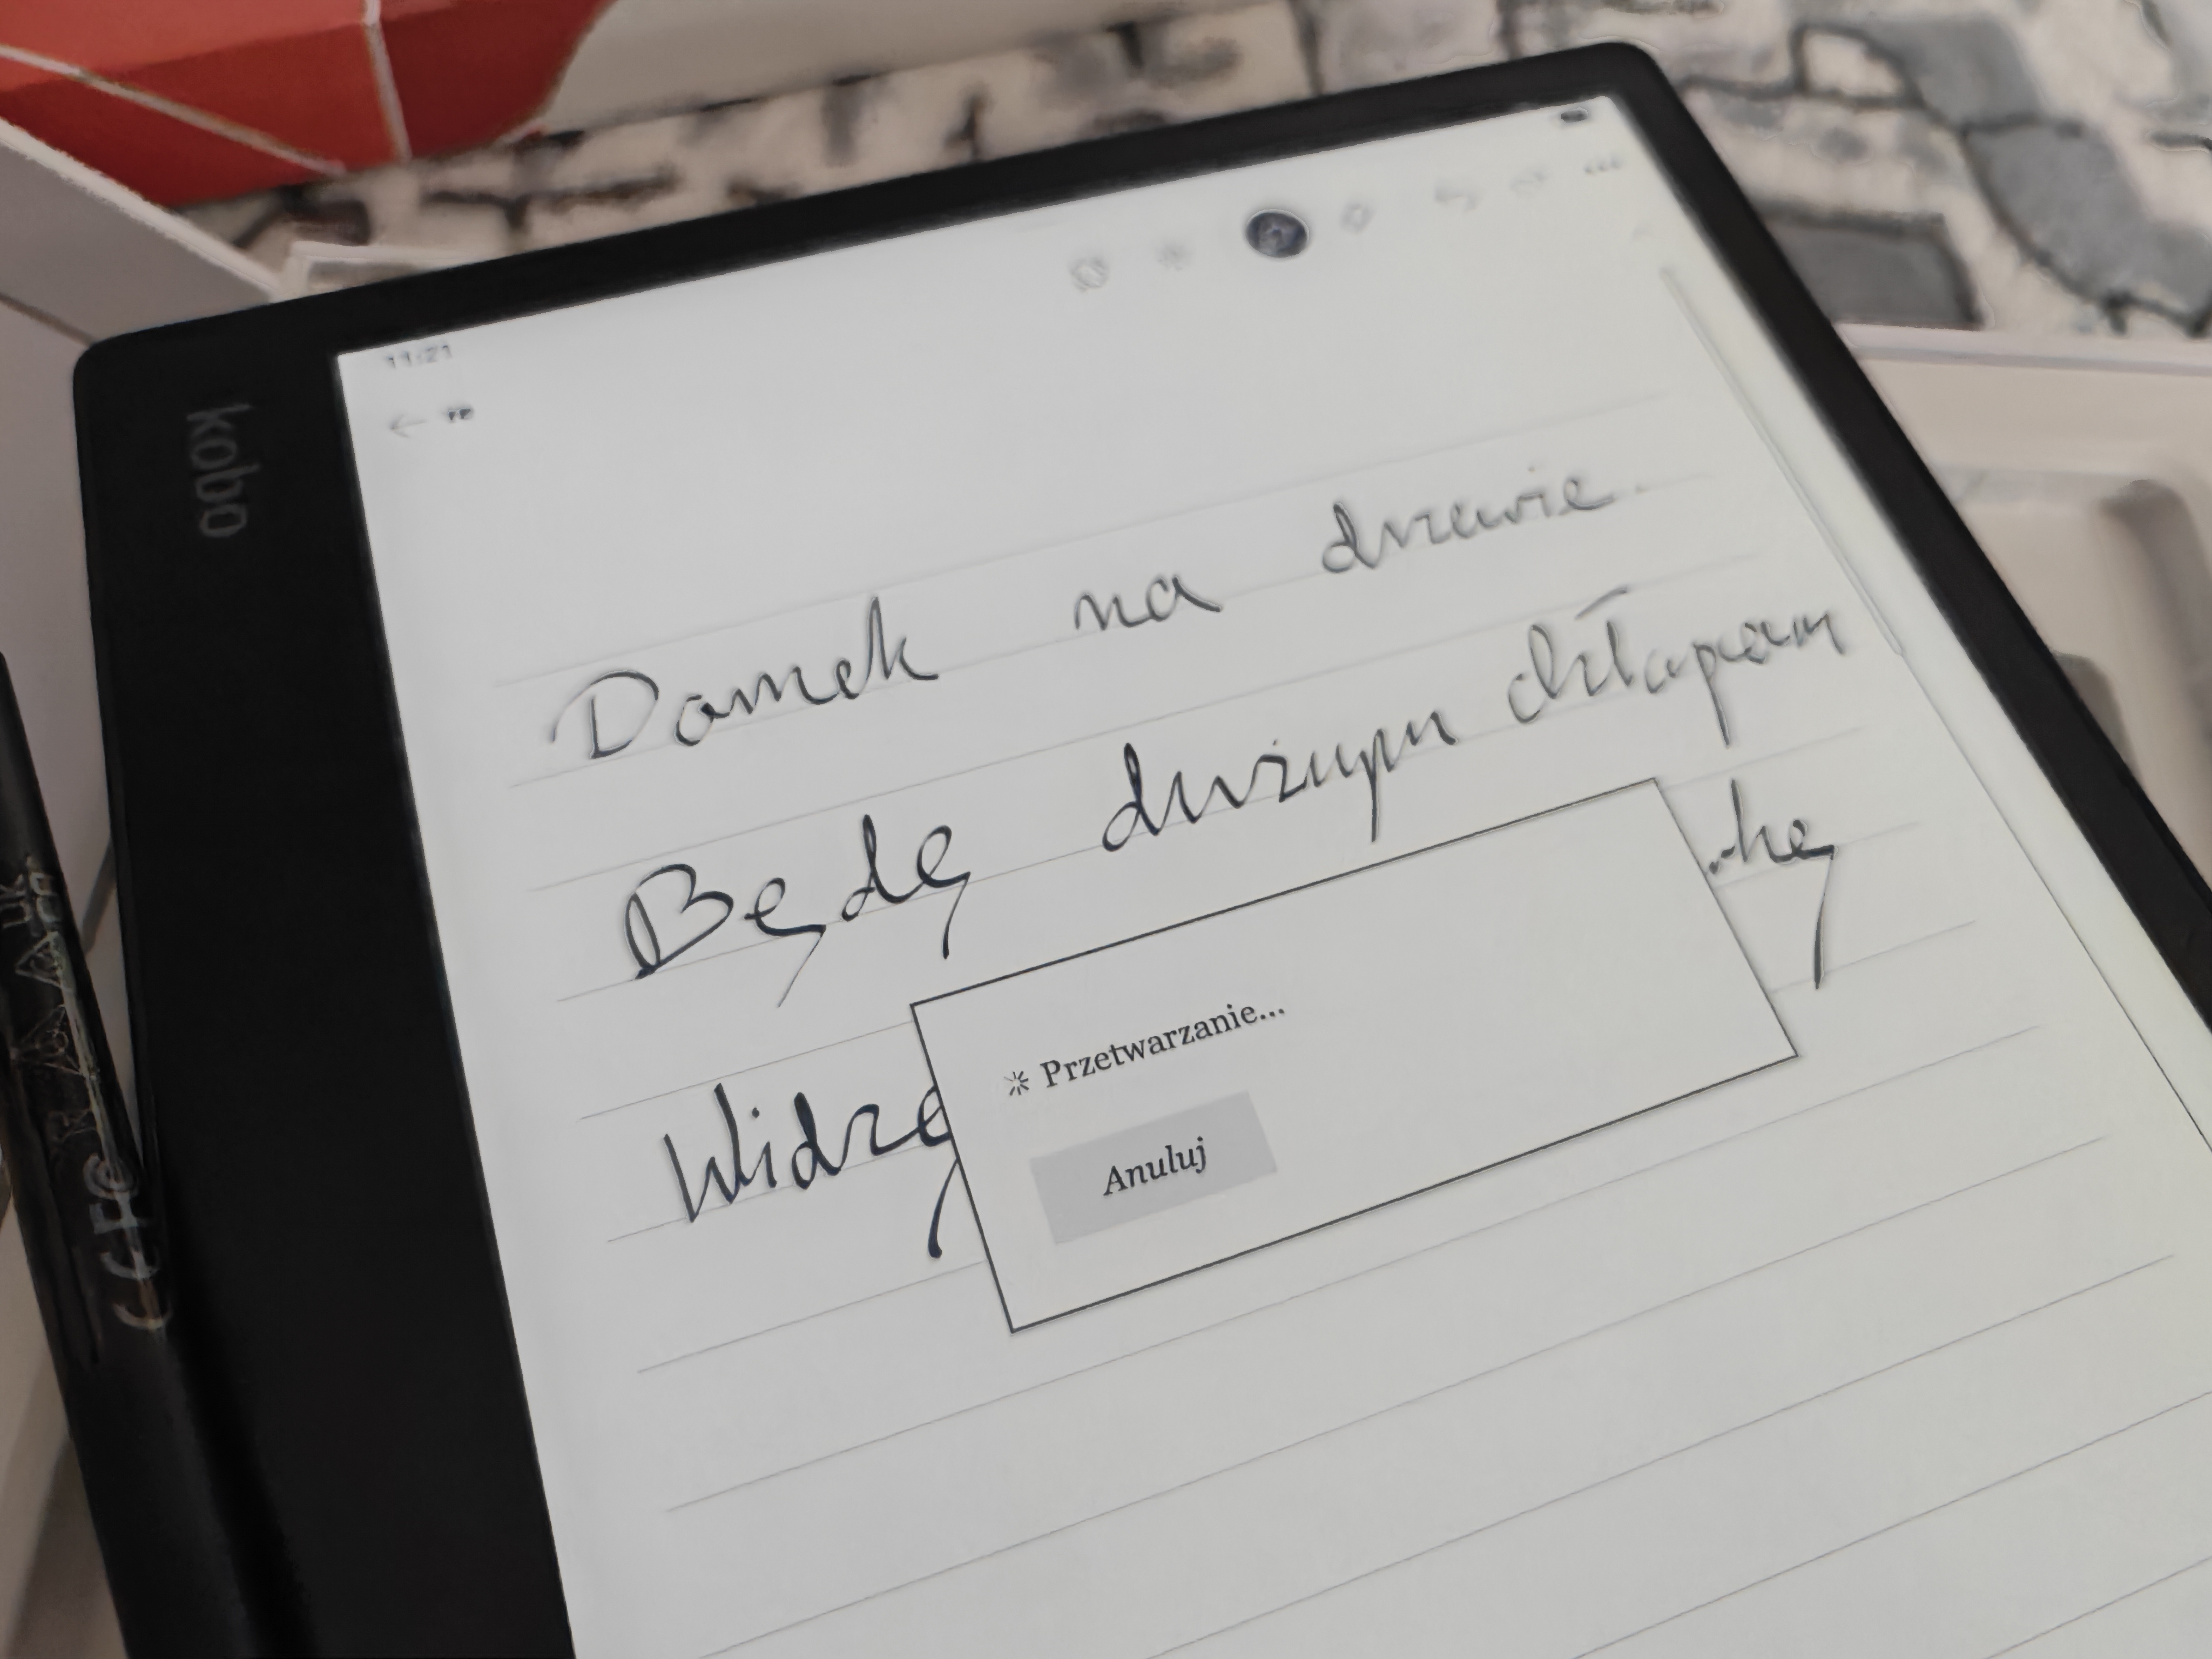 11:21
kobo
Domek na drzewie.
Będę dużym chłopam
Widzę hę
Przetwarzanie...
Anuluj